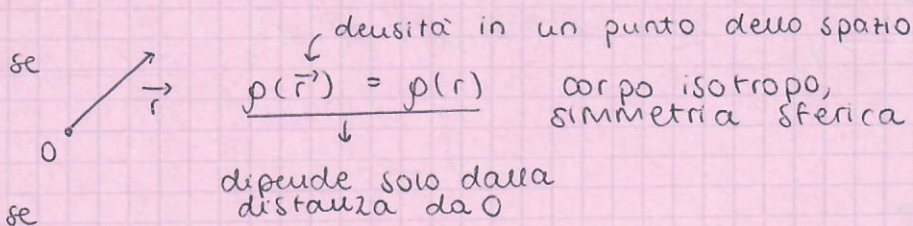 densità in un punto dello spazio
se
r⃗
ρ(r⃗) = ρ(r)
corpo isotropo,
simmetria sferica
O
dipende solo dalla
distanza da O
se